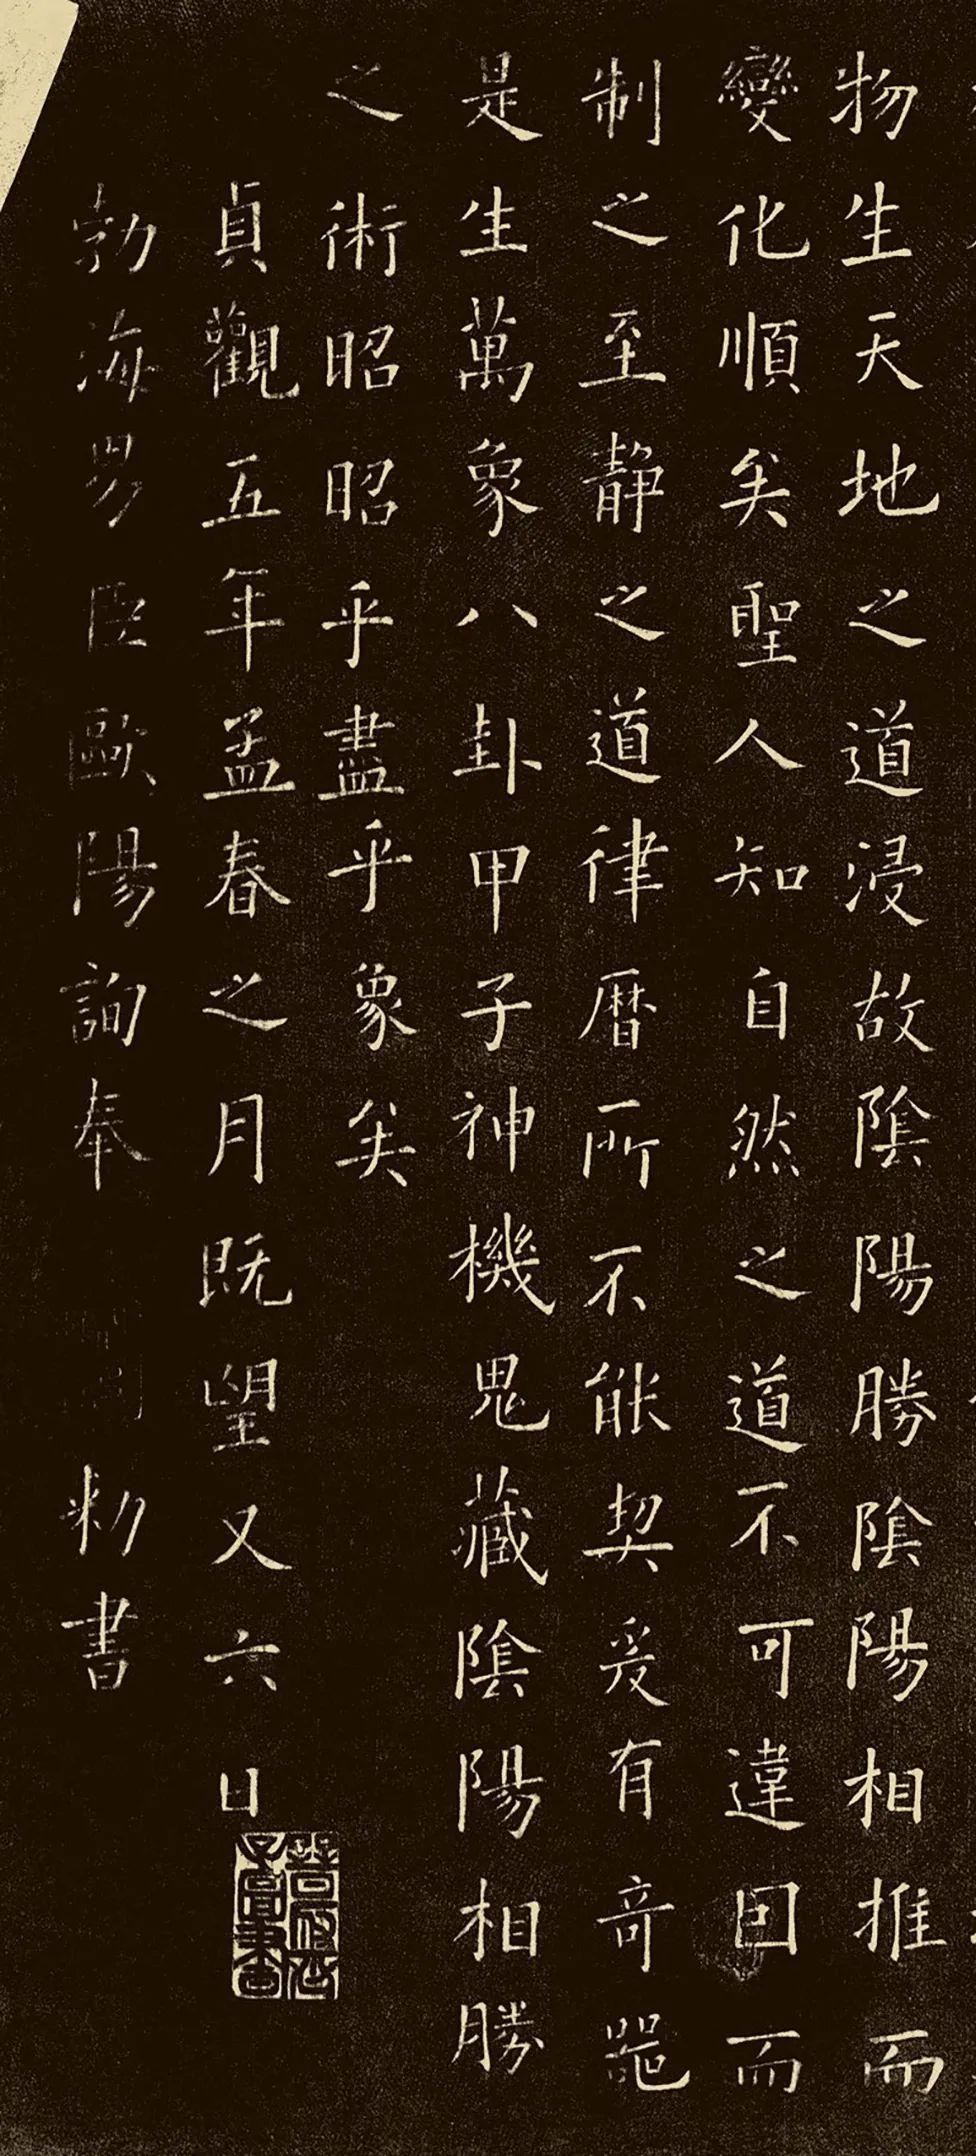 物生天地之道浸故陰陽勝陰陽相推而
變化順矣聖人知自然之道不可違因而
制之至静之道律曆所不能契爰有奇器
是生萬象八卦甲子神機鬼藏陰陽相勝
之術昭昭乎盡乎象矣
貞觀五年孟春之月既望又六日
勃海男臣歐陽詢奉
勑書